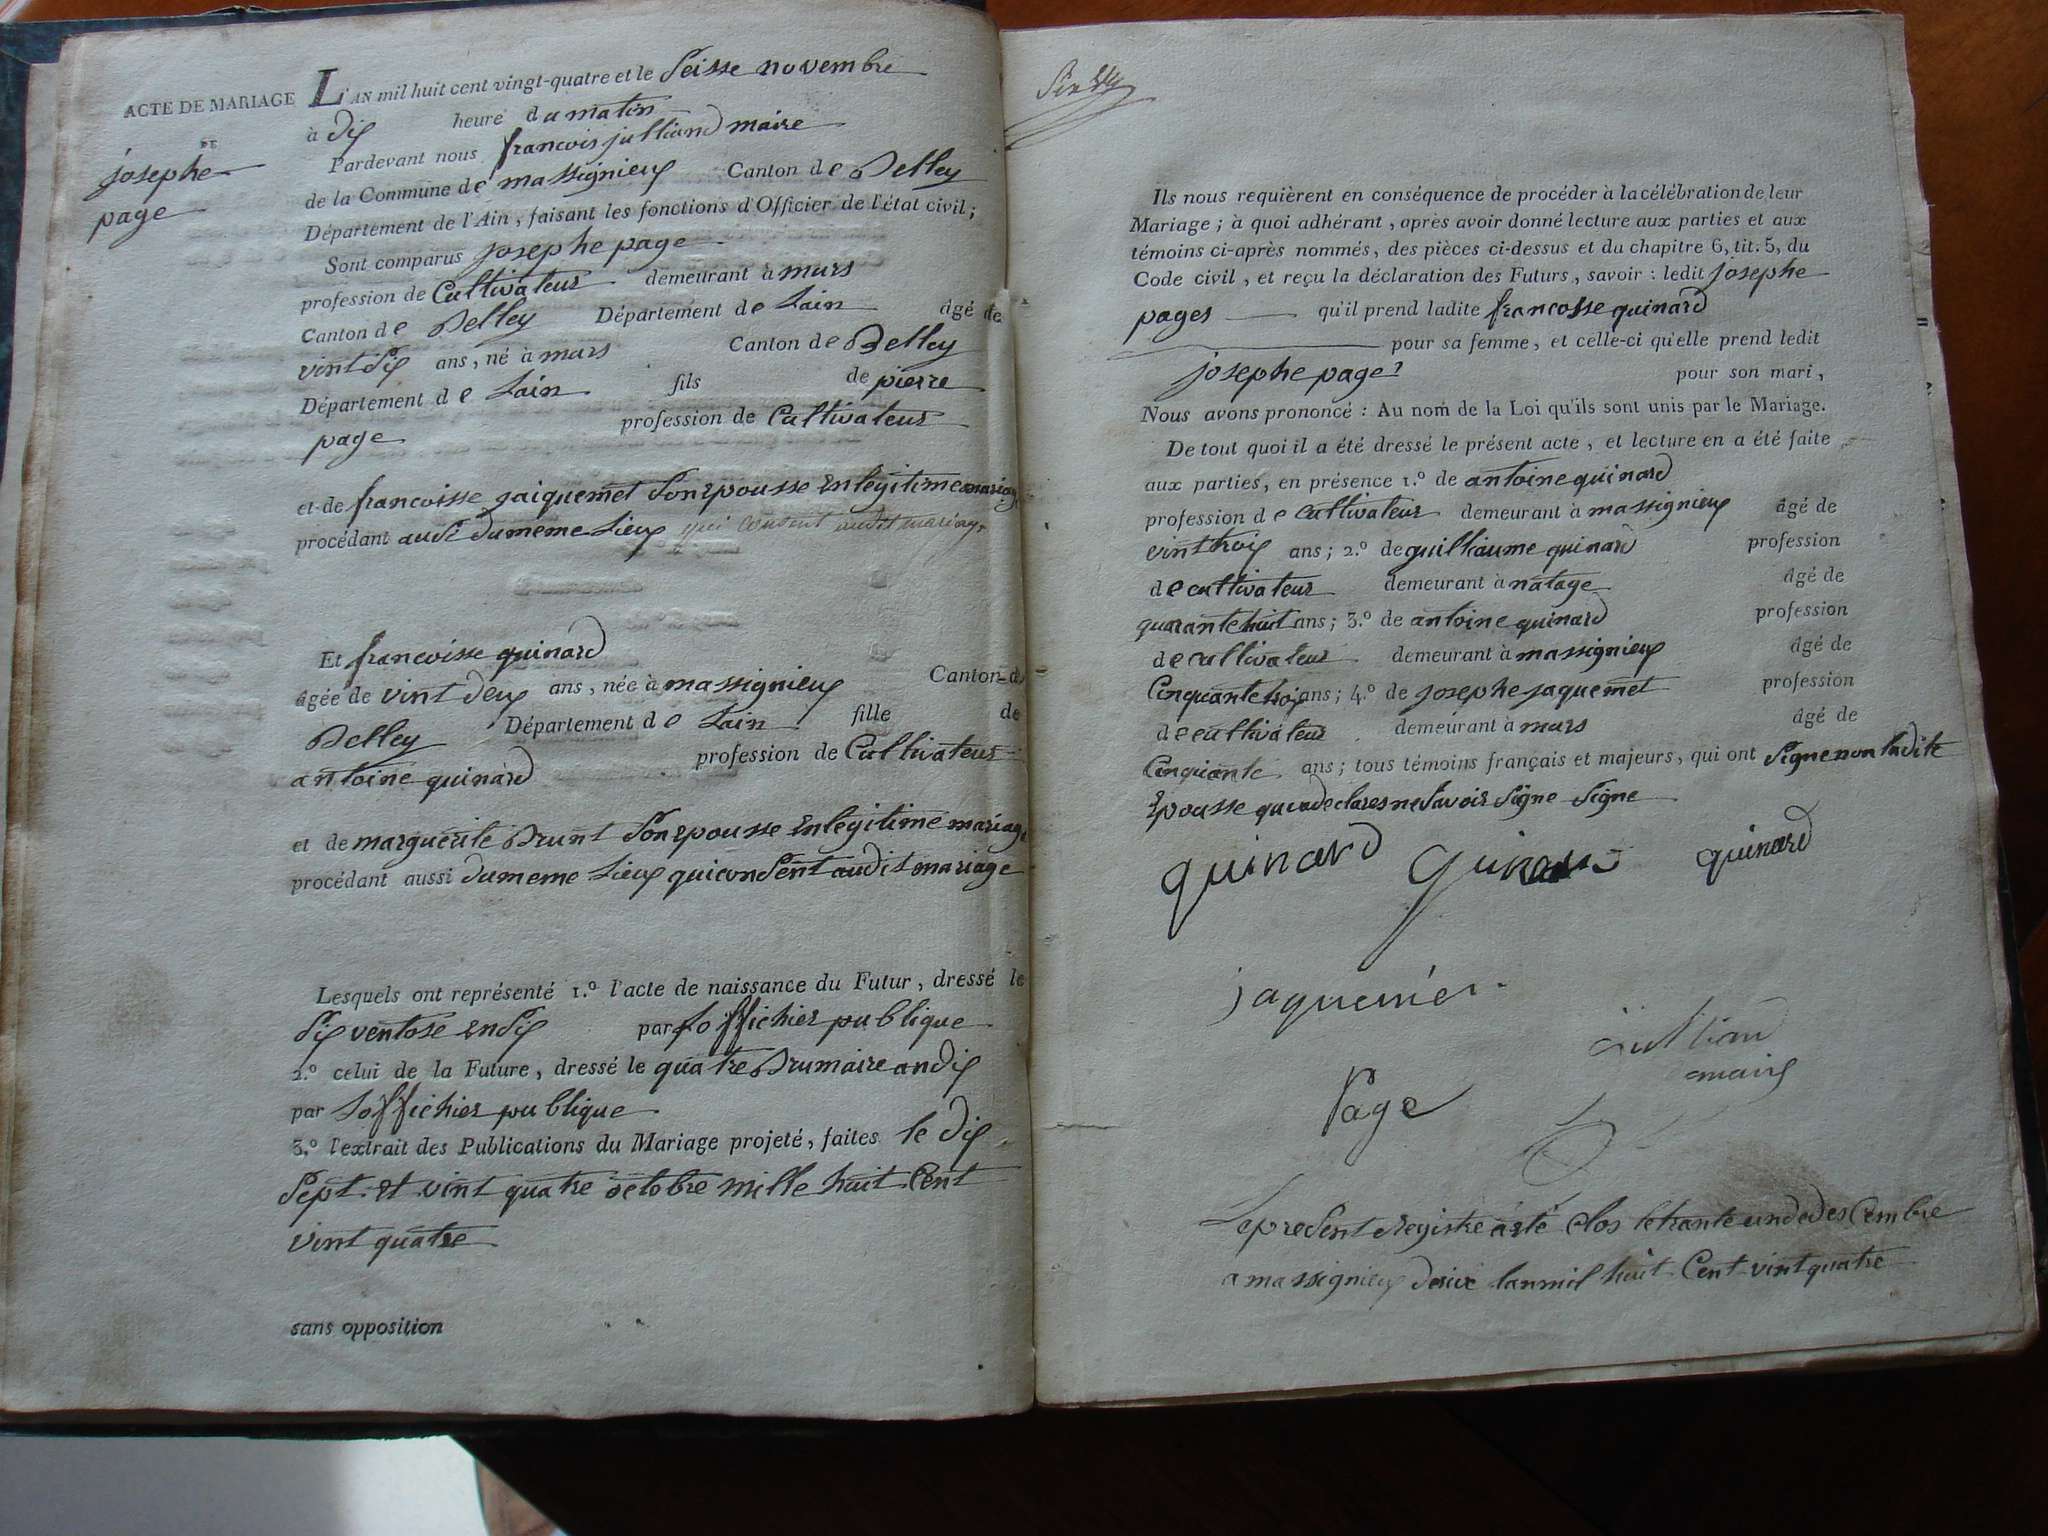 ACTE DE MARIAGE
DE
josephe
page
L'AN mil huit cent vingt-quatre et le Seisse novembre
à dix heure du matin
Pardevant nous francois julliand maire
de la Commune de massignieux Canton de Belley
Département de l'Ain, faisant les fonctions d'Officier de l'état civil;
Sont comparus josephe page
profession de Cultivateur demeurant à murs
Canton de Belley Département de Lain âgé de
vint dix ans, né à murs Canton de Belley
Département de Lain fils de pierre
page profession de Cultivateur
et de francoisse jaiquemet Son epousse en legitime mariage
procédant du meme Lieux qui consent audit mariage
Et francoisse quinard
âgée de vint deux ans, née à massignieux Canton de
Belley Département de Lain fille de
antoine quinard profession de Cultivateur
et de marguerite Brunt Son epousse en legitime mariage
procédant aussi du meme Lieux qui conSent audit mariage
Lesquels ont représenté 1.º l'acte de naissance du Futur, dressé le
Six ventose en Six par Lofficher publique
2.º celui de la Future, dressé le quatre Brumaire an dix
par Lofficher publique
3.º l'extrait des Publications du Mariage projeté, faites le dix
Sept et vint quatre octobre mille huit Cent
vint quatre
sans opposition
Ils nous requièrent en conséquence de procéder à la célébration de leur
Mariage; à quoi adhérant, après avoir donné lecture aux parties et aux
témoins ci-après nommés, des pièces ci-dessus et du chapitre 6, tit. 5, du
Code civil, et reçu la déclaration des Futurs, savoir: ledit josephe
pages qu'il prend ladite francosse quinard
pour sa femme, et celle-ci qu'elle prend ledit
josephe page pour son mari,
Nous avons prononcé: Au nom de la Loi qu'ils sont unis par le Mariage.
De tout quoi il a été dressé le présent acte, et lecture en a été faite
aux parties, en présence 1.º de antoine quinard
profession de cultivateur demeurant à massignieux âgé de
vint troix ans; 2.º de guilliaume quinard profession
de cultivateur demeurant à natage âgé de
quarante huit ans; 3.º de antoine quinard profession
de cultivateur demeurant à massignieux âgé de
Cinquante troix ans; 4.º de josephe jaquemet profession
de cultivateur demeurant à murs âgé de
Cinquante ans; tous témoins français et majeurs, qui ont Signe non ladite
epousse qui a declares ne Savoir Signe Signe
quinard quinard quinard
jaquemet
julliand
maire
Page
Le preSent Registre a été Clos le trante un de desCembre
a massignieux lan mil huit Cent vint quatre